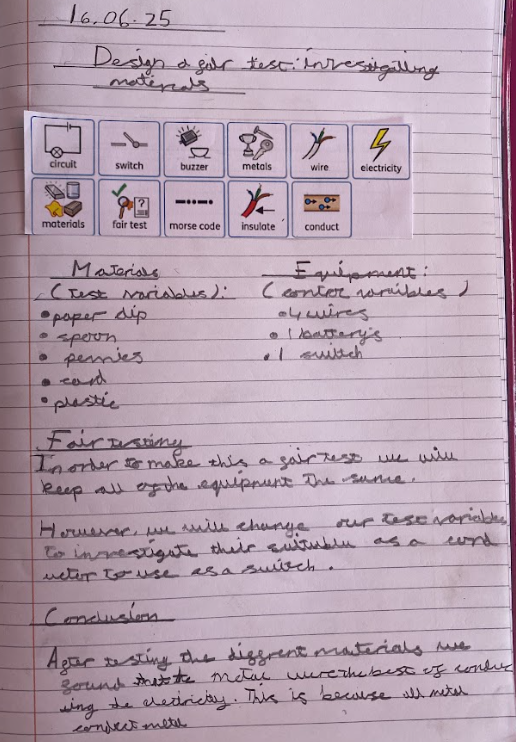 16.06.25
Design a fair test: investigating
materials
circuit switch buzzer metals wire electricity
materials fair test morse code insulate conduct
Materials
(test variables):
• paper clip
• spoon
• pennies
• card
• plastic
Equipment:
(contor varibles)
• 4 wires
• 1 battery's
• 1 switch
Fair testing
In order to make this a fair test we will
keep all of the equipment the same.
However, we will change our test variables
to investigate their suitublu as a cond
uctor to use as a switch.
Conclusion
After testing the diffrent materials we
found that the metal were the best of conduc
ing the eletricity. This is because all metal
conduct metal